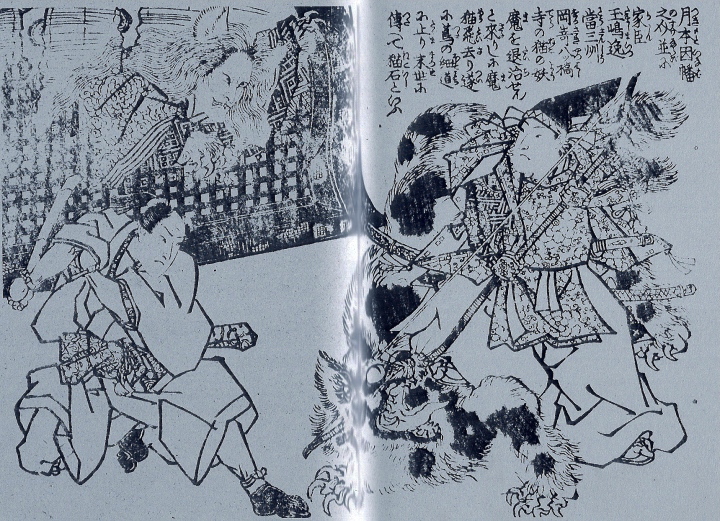 月本因幡
之介並に
家臣
玉嶋逸
當三州
岡崎八橋
寺の猫の妖
魔を退治せん
と来りしに魔
猫飛去り遂
に蔦の細道
に止り末世に
傳へて猫石といふ